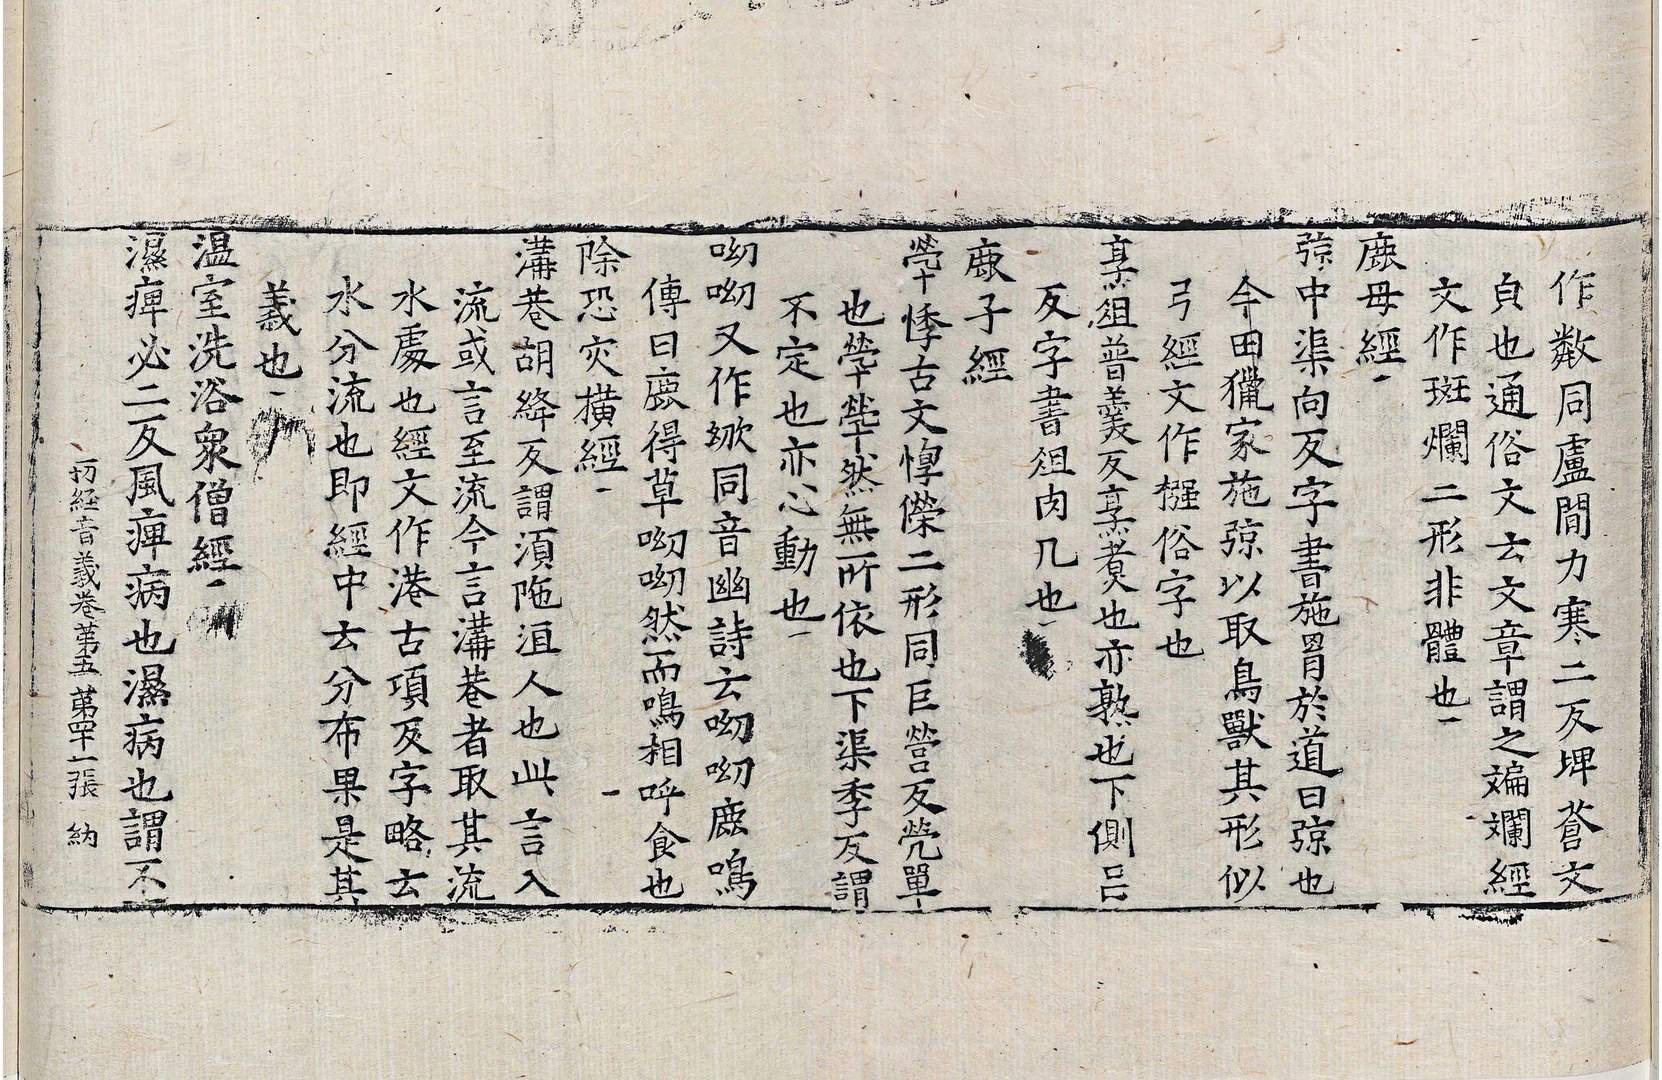 作斒同盧間力寒二反埤蒼文
皃也通俗文云文章謂之斒斕經
文作斑爛二形非體也
鹿母經
弶中渠向反字書施罥於道曰弶也
今田獵家施弶以取鳥獸其形似
弓經文作摾俗字也
烹俎普羹反烹煮也亦熟也下側呂
反字書俎肉几也
鹿子經
煢悸古文惸㒯二形同巨營反煢單
也煢煢然無所依也下渠季反謂
不定也亦心動也
呦呦又作㕭同音幽詩云呦呦鹿鳴
傳曰鹿得草呦呦然而鳴相呼食也
除恐灾橫經
溝巷胡絳反謂須陁洹人也此言入
流或言至流今言溝巷者取其流
水處也經文作港古項反字略云
水分流也即經中云分布果是其
義也
温室洗浴衆僧經
濕痺必二反風痺病也濕病也謂不
一切経音義卷第五 第四十一張 納